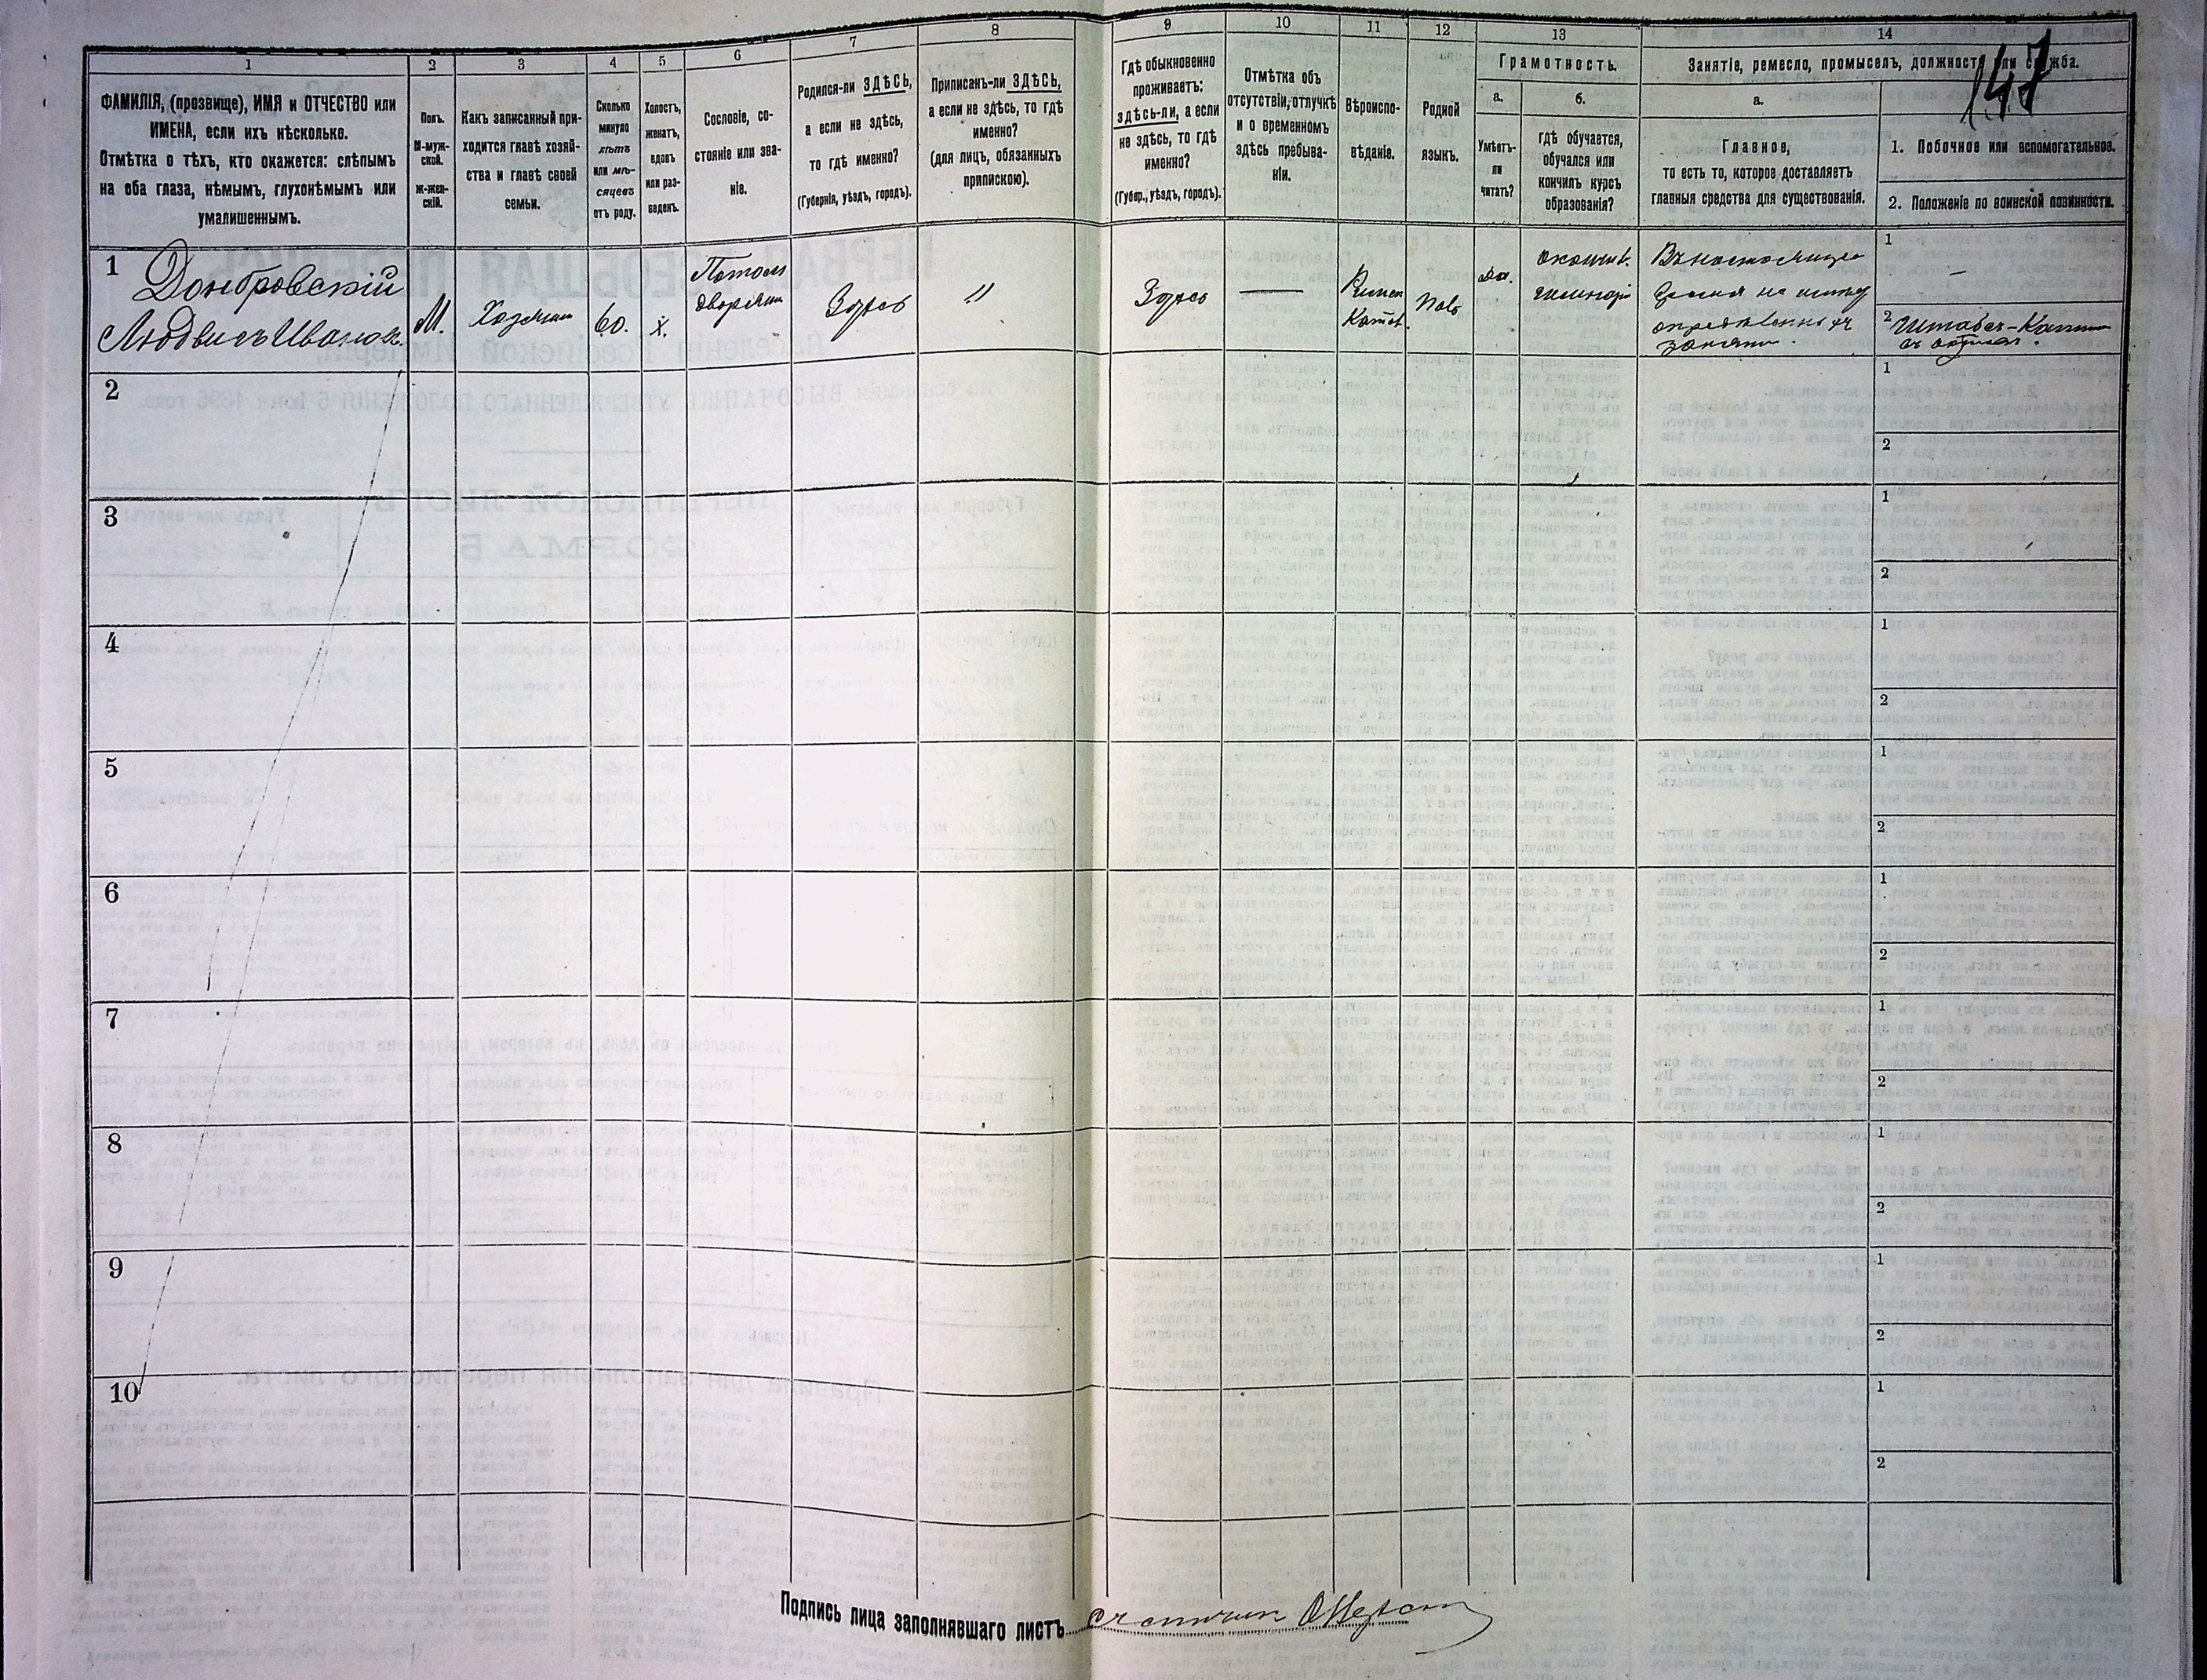 1
2
3
4
5
6
7
8
9
10
11
12
13
14
ФАМИЛІЯ, (прозвище), ИМЯ и ОТЧЕСТВО или
ИМЕНА, если ихъ нѣсколько.
Отмѣтка о тѣхъ, кто окажется: слѣпымъ
на оба глаза, нѣмымъ, глухонѣмымъ или
умалишеннымъ.
Полъ.
М-муж-
ской.
ж-жен-
скій.
Какъ записанный при-
ходится главѣ хозяй-
ства и главѣ своей
семьи.
Сколько
минуло
лѣтъ
или мѣ-
сяцевъ
отъ роду.
Холостъ,
женатъ,
вдовъ
или раз-
веденъ.
Сословіе, со-
стояніе или зва-
ніе.
Родился-ли ЗДѢСЬ,
а если не здѣсь,
то гдѣ именно?
(Губернія, уѣздъ, городъ).
Приписанъ-ли ЗДѢСЬ,
а если не здѣсь, то гдѣ
именно?
(для лицъ, обязанныхъ
припискою).
Гдѣ обыкновенно
проживаетъ:
здѣсь-ли, а если
не здѣсь, то гдѣ
именно?
(Губер., уѣздъ, городъ).
Отмѣтка объ
отсутствіи, отлучкѣ
и о временномъ
здѣсь пребыва-
ніи.
Вѣроиспо-
вѣданіе.
Родной
языкъ.
Грамотность.
а.
б.
Умѣетъ-
ли
читать?
гдѣ обучается,
обучался или
кончилъ курсъ
образованія?
Занятіе, ремесло, промыселъ, должность или служба.
147
а.
Главное,
то есть то, которое доставляетъ
главныя средства для существованія.
1. Побочное или вспомогательное.
2. Положеніе по воинской повинности.
1
Домбровскій
Людвигъ Иванов.
М.
Хозяин
60.
х.
Потом
дворянин
Здѣсь
"
Здѣсь
—
Римск
Катол.
Поль
да.
окончив.
гимназію
Въ настоящее
время не имѣе
опредѣленныхъ
заняти.
1
—
2
Штабсъ-Капитан
въ отставк.
2
1
2
3
1
2
4
1
2
5
1
2
6
1
2
7
1
2
8
1
2
9
1
2
10
1
2
Подпись лица заполнявшаго листъ
Счетчик